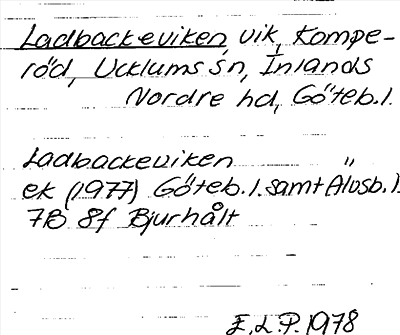 Ladbackeviken, vik, Kompe-
röd, Ucklums sn, Inlands
Nordre hd, Göteb.l.
Ladbackeviken "
ek (1977) Göteb.l. samt Älvsb.l.
7B 8f Bjurhålt
E.L.P. 1978